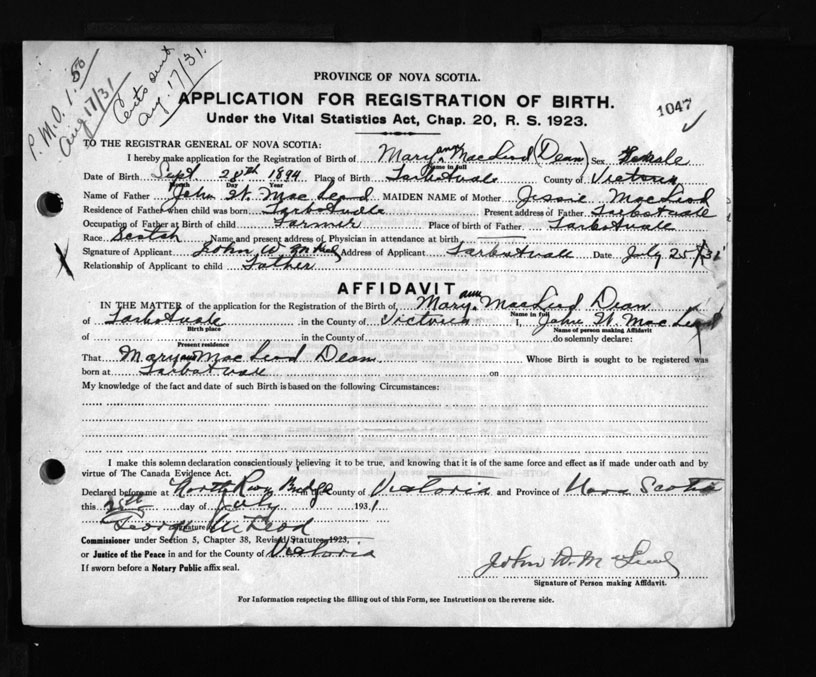 P.M.O. 1.50
Aug 17/31
Certs sent
Aug. 17/31.
PROVINCE OF NOVA SCOTIA.
APPLICATION FOR REGISTRATION OF BIRTH.
1047
Under the Vital Statistics Act, Chap. 20, R. S. 1923.
TO THE REGISTRAR GENERAL OF NOVA SCOTIA:
I hereby make application for the Registration of Birth of Mary ann MacLeod (Dean) Sex Female
Name in full
Date of Birth Sept. 28th 1894 Place of Birth Tarbotvale County of Victoria
Month Day Year
Name of Father John W. MacLeod MAIDEN NAME of Mother Jessie MacLeod
Residence of Father when child was born Tarbotvale Present address of Father Tarbotvale
Occupation of Father at Birth of Child Farmer Place of birth of Father Tarbotvale
Race Scotch Name and present address of Physician in attendance at birth
Signature of Applicant John W McLeod Address of Applicant Tarbotvale Date July 25/31
Relationship of Applicant to child Father
AFFIDAVIT
IN THE MATTER of the application for the Registration of the Birth of Mary ann MacLeod Dean
Name in full
of Tarbotvale in the County of Victoria I, John W. MacLeod
Birth place Name of person making Affidavit
of in the County of do solemnly declare:
Present residence
That Mary ann MacLeod Dean Whose Birth is sought to be registered was
born at Tarbotvale on
My knowledge of the fact and date of such Birth is based on the following Circumstances:
I make this solemn declaration conscientiously believing it to be true, and knowing that it is of the same force and effect as if made under oath and by
virtue of The Canada Evidence Act.
Declared before me at North River Bridge County of Victoria and Province of Nova Scotia
this 25th day of July 1931
George McLeod
Signature
Commissioner under Section 5, Chapter 38, Revised Statutes 1923,
or Justice of the Peace in and for the County of Victoria
If sworn before a Notary Public affix seal.
John W. McLeod
Signature of Person making Affidavit.
For Information respecting the filling out of this Form, see Instructions on the reverse side.